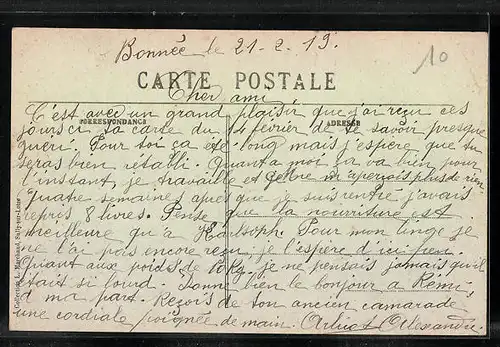 Bonnée le 21-2-19.
10
CARTE POSTALE
Cher ami
CORRESPONDANCE
ADRESSE
C'est avec un grand plaisir que j'ai reçu ces
jours ci ta carte du 14 février de te savoir presque
guéri. Pour toi ça été long mais j'espère que tu
seras bien rétabli. Quant a moi ça va bien pour
l'instant, je travaille et m'aperçois plus de rien
Quatre semaine, après que je suis rentré j'avais
repris 8 livres. Pense que la nourriture est
meilleure qu'a. Pour mon linge je
ne l'ai pas encore reçu, je l'espère d'ici peu.
Quant aux poids de kg, je ne pensais jamais qu'il
était si lourd. Donne bien le bonjour a Rémi,
d ma part. Reçois de ton ancien camarade
une cordiale poignée de main. Alexandre
Collection L. Marchand, Sully-sur-Loire